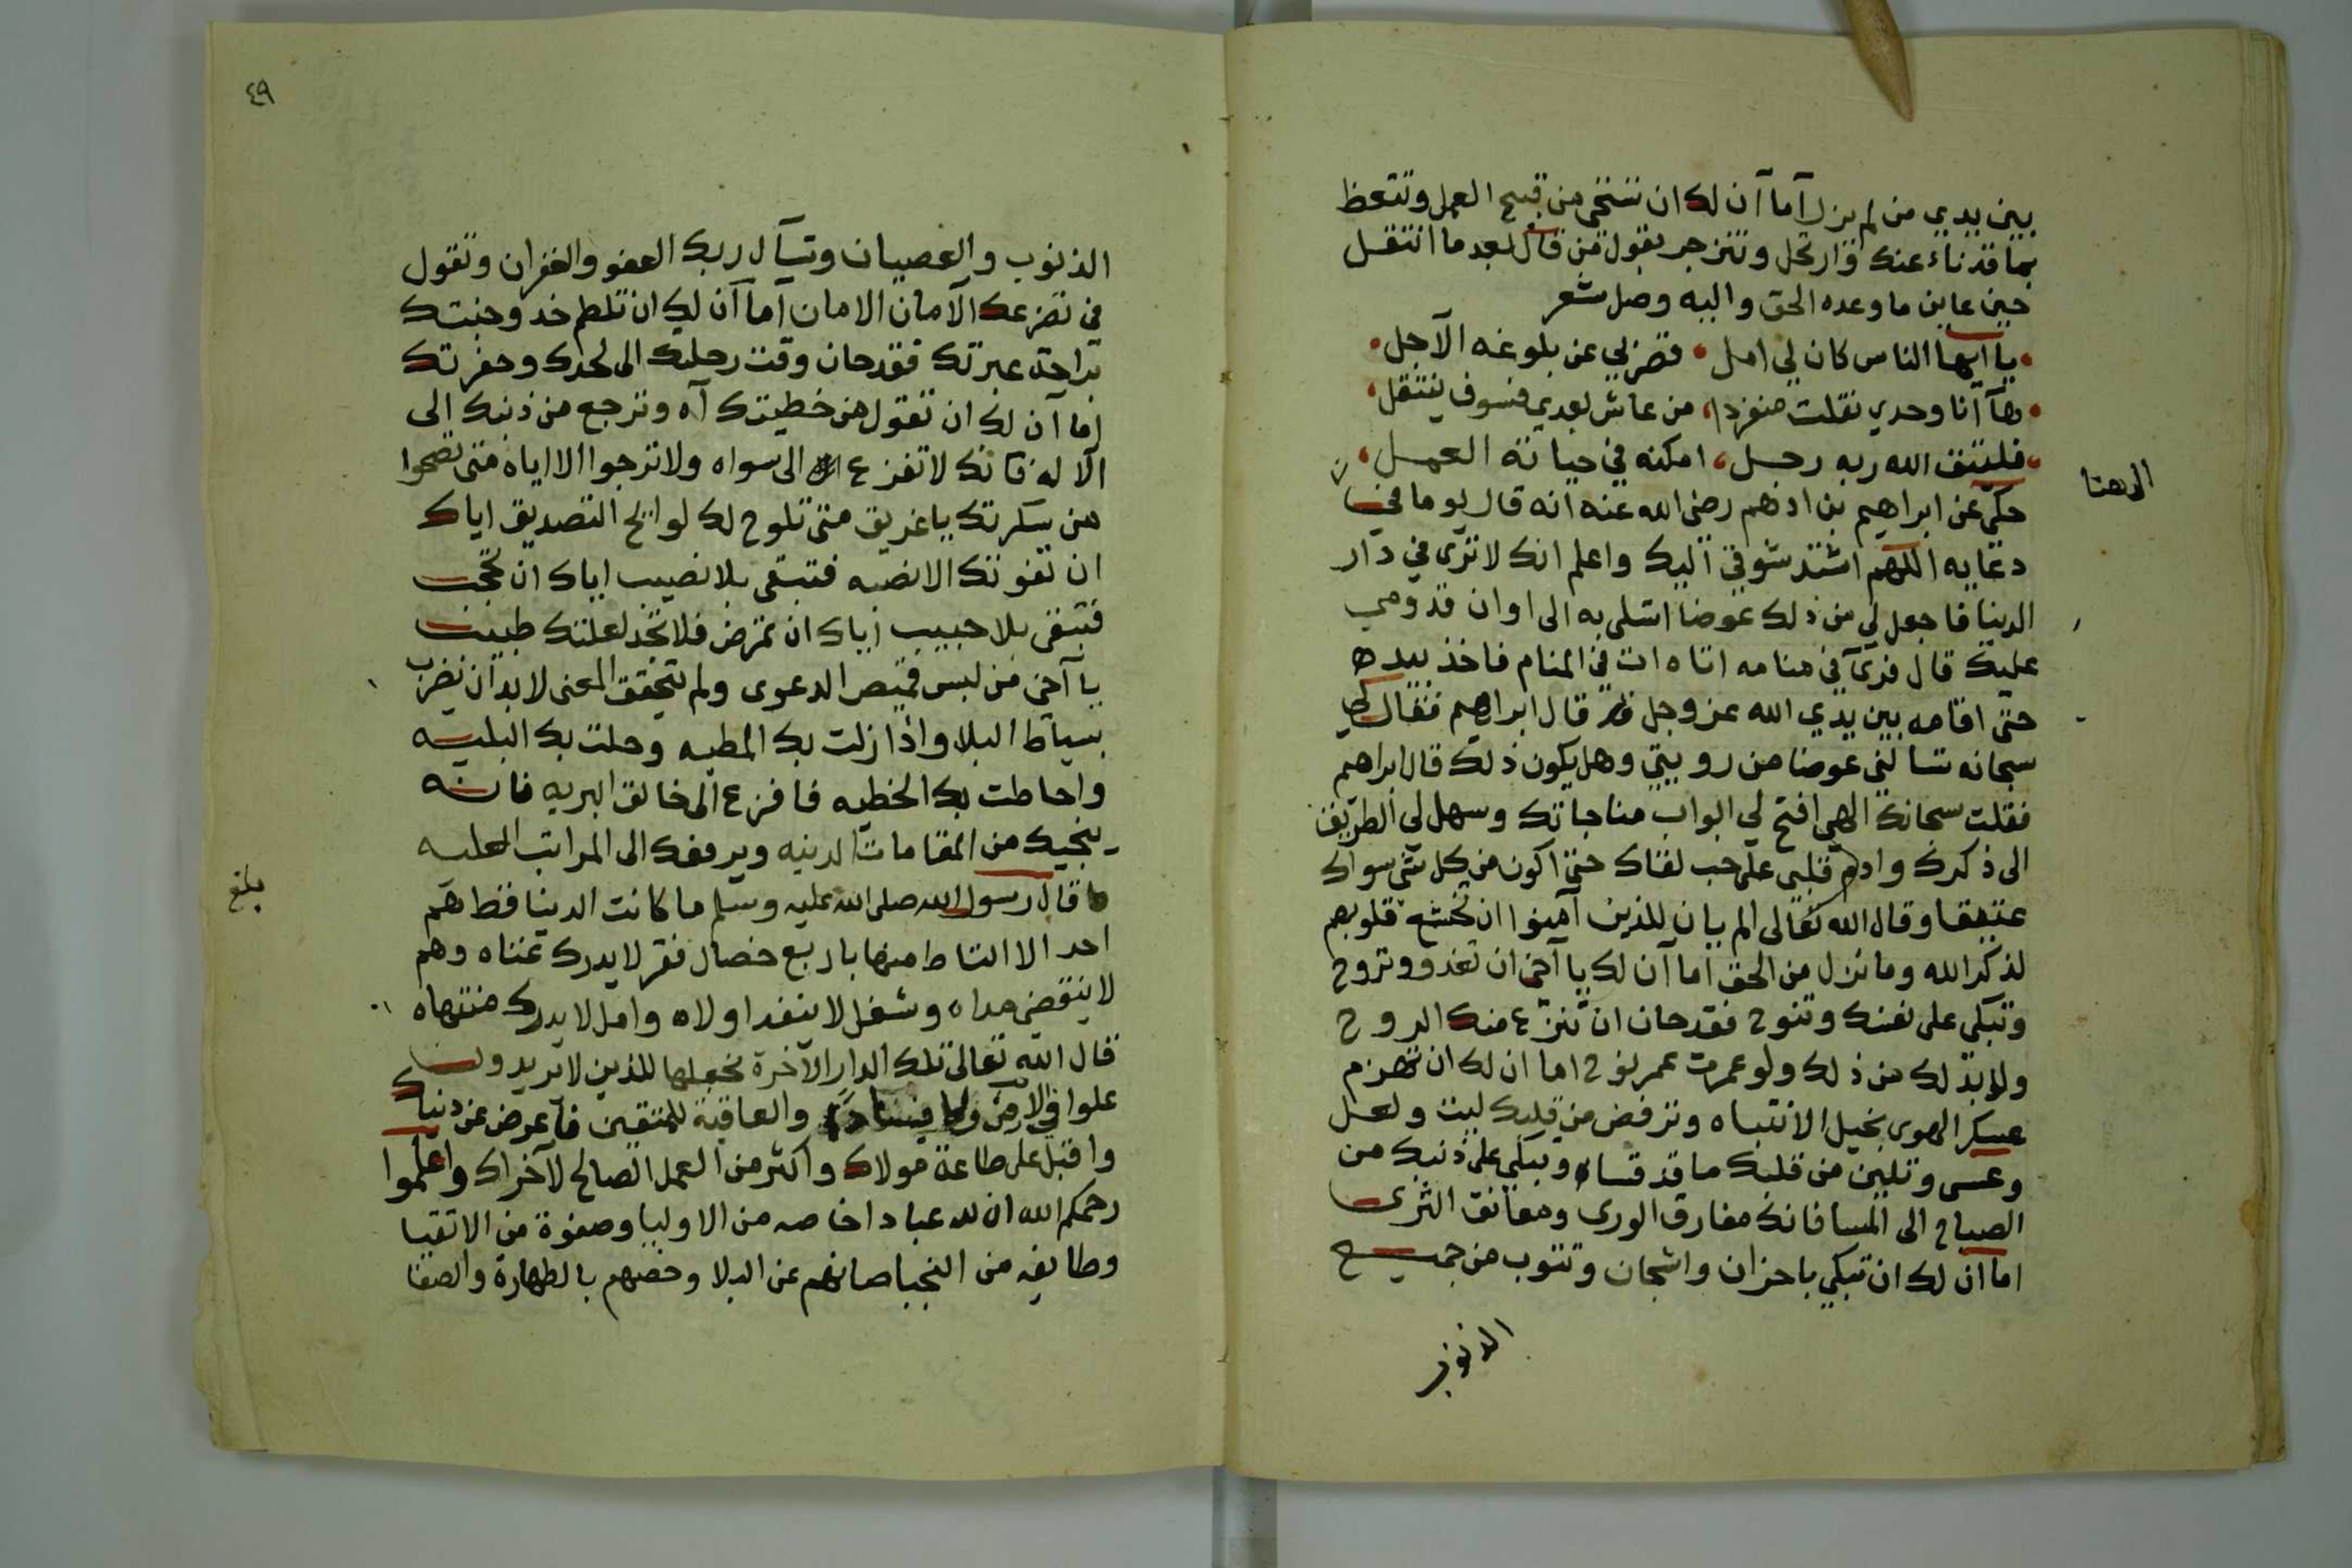 بين يدي من لم يزل آما آن لك ان تستحي من قبيح العمل وتتعظ
بما قد ناء عنك وارتحل وتنزجر بقول من قال بعد ما انتقل
حين عاين ما وعده الحق واليه وصل شعر
يا ايها الناس كان لي امل قصر بي عن بلوغه الآجل
ها آنا وحدي نقلت منفردا من عاش بعدي فسوف ينتقل
فليتق الله ربه رجل امكنه في حياته العمل
حكي عن ابراهيم بن ادهم رضي الله عنه انه قال يوما في
دعايه اللهم اشتد شوقي اليك واعلم انك لا ترى في دار
الدنيا فاجعل لي من ذلك عوضا اتسلى به الى اوان قدومي
عليك قال فرى في منامه اتاه ات في المنام فاخذ بيده
حتى اقامه بين يدي الله عز وجل قال ابراهيم فقال لي
سبحانه تسالني عوضا من رويتي وهل يكون ذلك قال ابراهيم
فقلت سبحانك الهي افتح لي ابواب مناجاتك وسهل لي الطريق
الى ذكرك وادم قلبي على حب لقاك حتى اكون من كل شي سواك
عتيقا وقال الله تعالى الم يان للذين آمنوا ان تخشع قلوبهم
لذكر الله وما نزل من الحق اما آن لك يا آخي ان تغدو وتروح
وتبكي على نفسك وتنوح فقد حان ان تنزع منك الروح
ولا بد لك من ذلك ولو عمرت عمر نوح اما ان لك ان تهزم
عسكر الهوى بخيل الانتباه وترفض من قلبك ليت ولعل
وعسى وتلين من قلبك ما قد قساه وتبكي على ذنبك من
الصباح الى المسا فانك مفارق الورى ومعانق الثرى
اما ان لك ان تبكي باحزان واشجان وتتوب من جميع
الذنوب
٤٩
الذنوب والعصيان وتسآل ربك العفو والغفران وتقول
في تضرعك الآمان الامان اما آن لك ان تلطم خد وجنتك
براحة عبرتك فقد حان وقت رحلتك الى لحدك وحفرتك
اما آن لك ان تقول من خطيتك آه وترجع من ذنبك الى
الآله فانك لا تفزع الى سواه ولا ترجوا الا اياه متى تصحوا
من سكرتك يا غريق متى تلوح لك لوايح التصديق اياك
ان تفوتك الانصبه فتبقى بلا نصيب اياك ان تحجب
فتبقى بلا حبيب اياك ان تمرض فلا تجد لعلتك طبيب
يا آخي من لبس قميص الدعوى ولم يتحقق المعنى لا بد ان يضرب
بسياط البلا واذا زلت بك المطيه وحلت بك البليه
واحاطت بك الخطيه فافزع الى خالق البريه فانه
ينجيك من المقامات الدنيه ويرفعك الى المراتب العليه
قال رسول الله صلى الله عليه وسلم ما كانت الدينا قط هم
احد الا التاط منها باربع خصال فقر لا يدرك غناه وهم
لا ينقضي مداه وشغل لا ينفد اولاه وامل لا يدرك منتهاه
قال الله تعالى تلك الدار الآخرة نجعلها للذين لا يريدون
علوا في الارض ولا فسادا والعاقبة للمتقين فآعرض عن دنياك
واقبل على طاعة مولاك واكثر من العمل الصالح لآخراك واعلموا
رحمكم الله ان لله عبادا خاصه من الاوليا وصفوة من الاتقيا
وطايفه من النجبا صانهم عن البلا وخصهم بالطهارة والصفا
بلغ